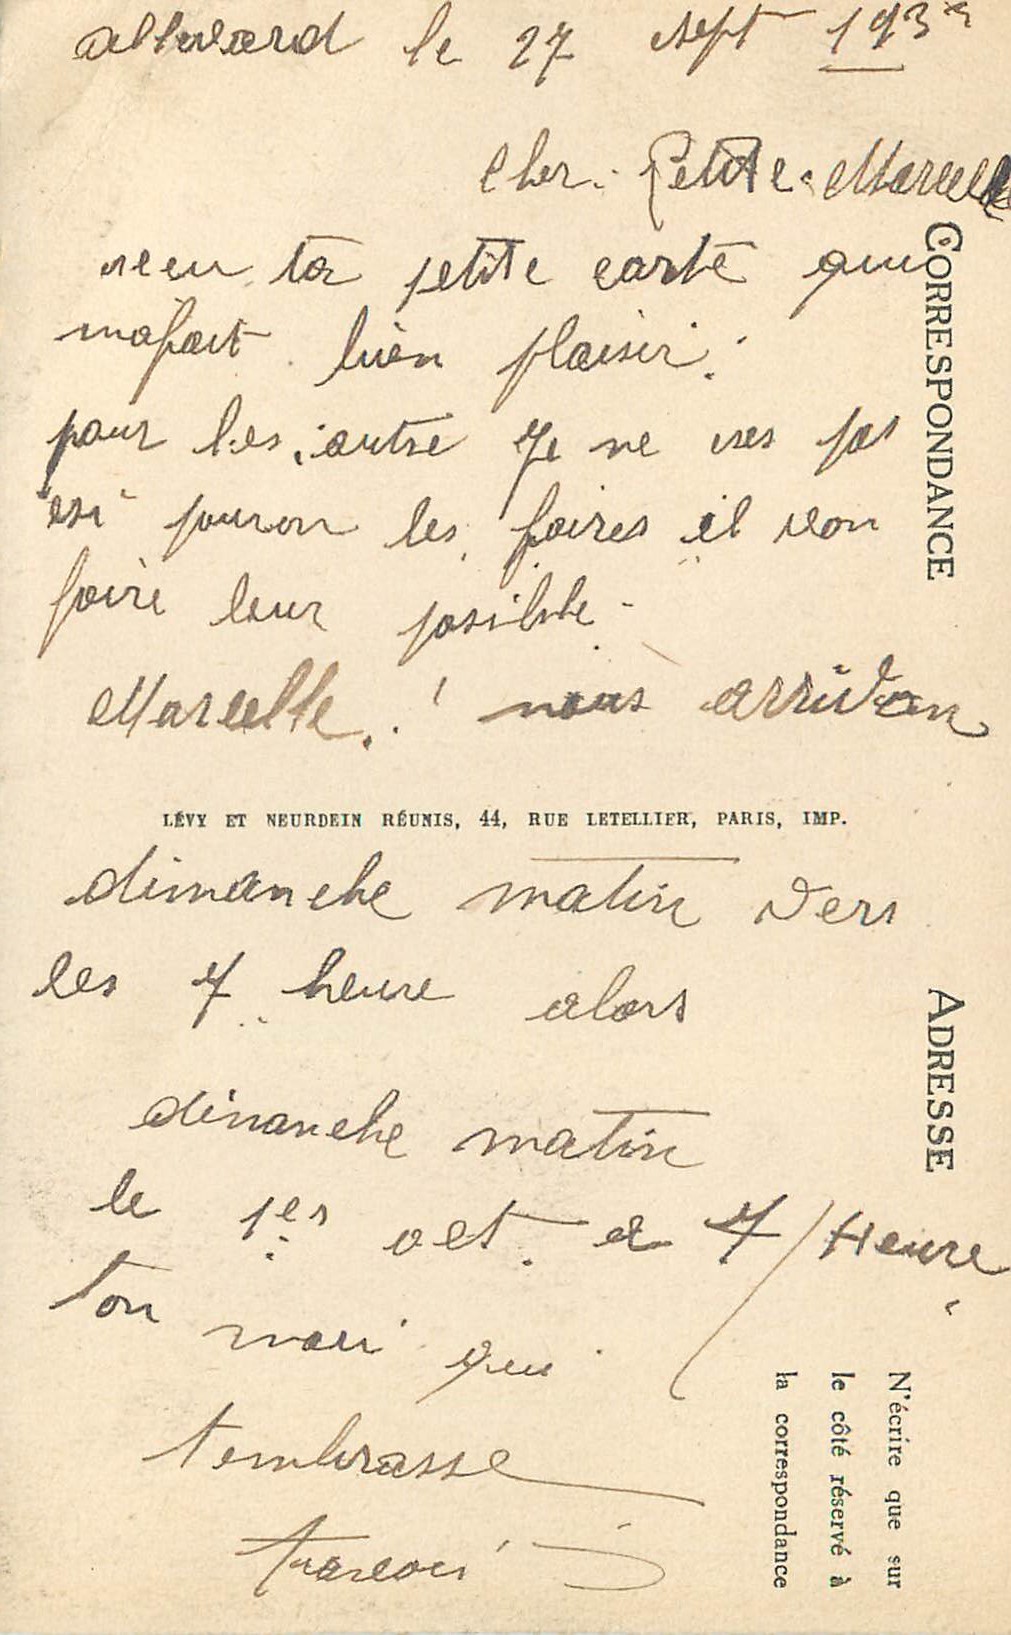 allevard le 27 sept 1933
Cher Petite Marcelle
recu ta petite carte qui
mafait bien plaisir.
pour les autre Je ne ses pas
esi pouron les faires il von
faire leur posible
Marcelle.! nous arrivon
LÉVY ET NEURDEIN RÉUNIS, 44, RUE LETELLIER, PARIS, IMP.
dimanche matin vers
les 7 heure alors
dimanche matin
le 1er oct. a 7/Heure
ton mari qui
tembrasse
francois
CORRESPONDANCE
ADRESSE
N'écrire que sur
le côté réservé à
la correspondance